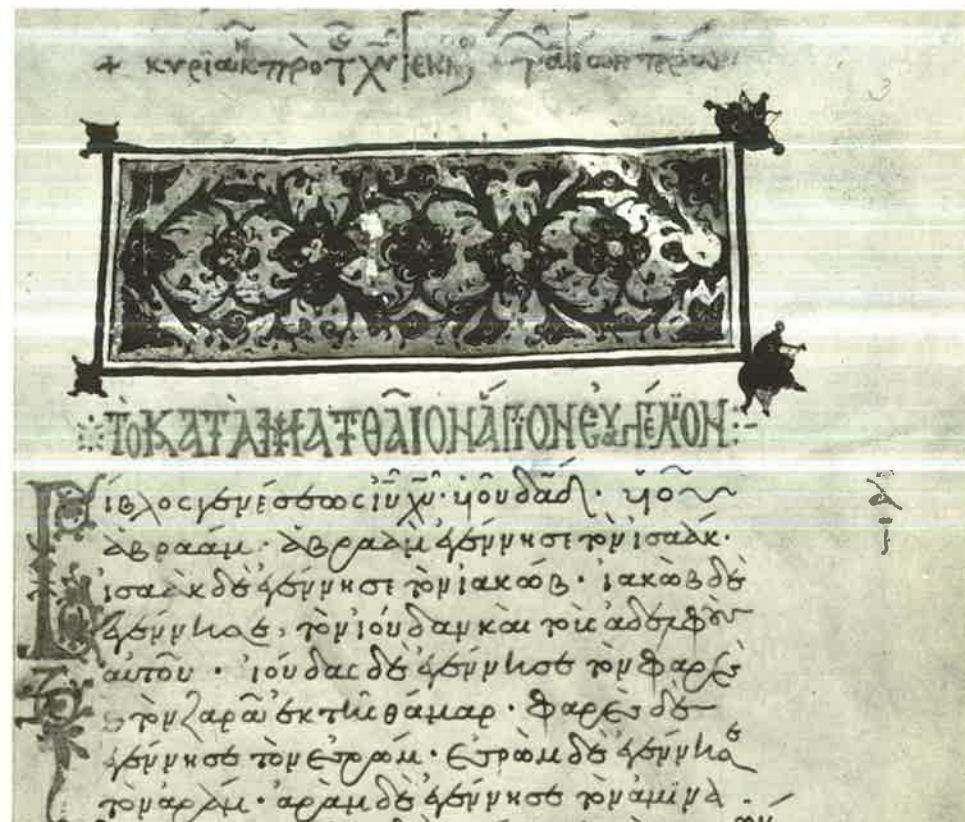 + κυριακ προ τ χυ γεν τ αγίων πρων
3
ΤΟ ΚΑΤΑ ΜΑΤΘΑΙΟΝ ἍΓΙΟΝ ΕΥΑΓΓΕΛΙΟΝ:-
Βίβλος γενέσεως ιυ χυ· υἱοῦ δαδ· υἱοῦ
ἀβραάμ· ἀβραὰμ ἐγέννησε τὸν ἰσαάκ·
ἰσαὰκ δὲ ἐγέννησε τὸν ἰακώβ· ἰακὼβ δὲ
ἐγέννησε, τὸν ἰούδαν καὶ τοὺς ἀδελφοὺς
αὐτοῦ· ἰούδας δὲ ἐγέννησε τὸν φαρὲς
ϛ τὸν ζαρὰ ἐκ τῆς θάμαρ· φαρὲς δὲ
ἐγέννησε τὸν ἐσρώμ· ἐσρὼμ δὲ ἐγέννησε
τὸν ἀράμ· ἀρὰμ δὲ ἐγέννησε τὸν ἀμινα